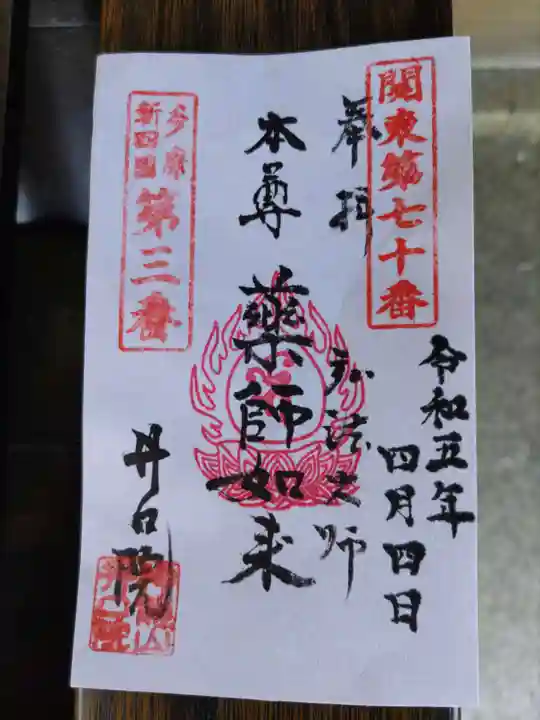 關東第七十番
奉拝
令和五年
四月四日
弘法大師
本尊
薬師如来
多摩
新四国
第三番
井口院